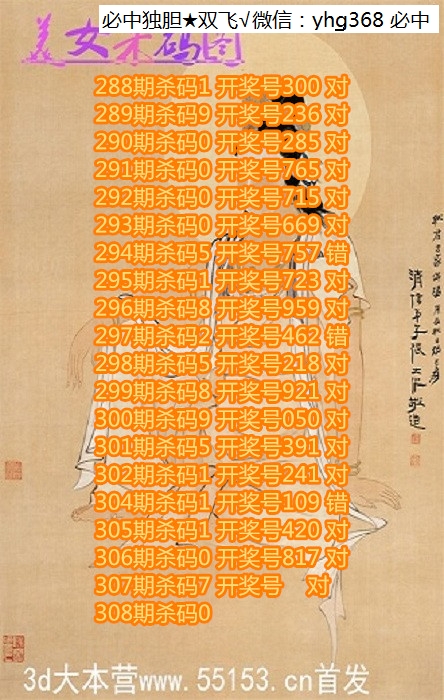 必中独胆★双飞√微信：yhg368 必中
美女杀码图
288期杀码1 开奖号300 对
289期杀码9 开奖号236 对
290期杀码0 开奖号285 对
291期杀码0 开奖号765 对
292期杀码0 开奖号715 对
293期杀码0 开奖号669 对
294期杀码5 开奖号757 错
295期杀码1 开奖号723 对
296期杀码8 开奖号630 对
297期杀码2 开奖号462 错
298期杀码5 开奖号218 对
299期杀码8 开奖号921 对
300期杀码9 开奖号050 对
301期杀码5 开奖号391 对
302期杀码1 开奖号241 对
304期杀码1 开奖号109 错
305期杀码1 开奖号420 对
306期杀码0 开奖号817 对
307期杀码7 开奖号 对
308期杀码0
3d大本营www.55153.cn首发